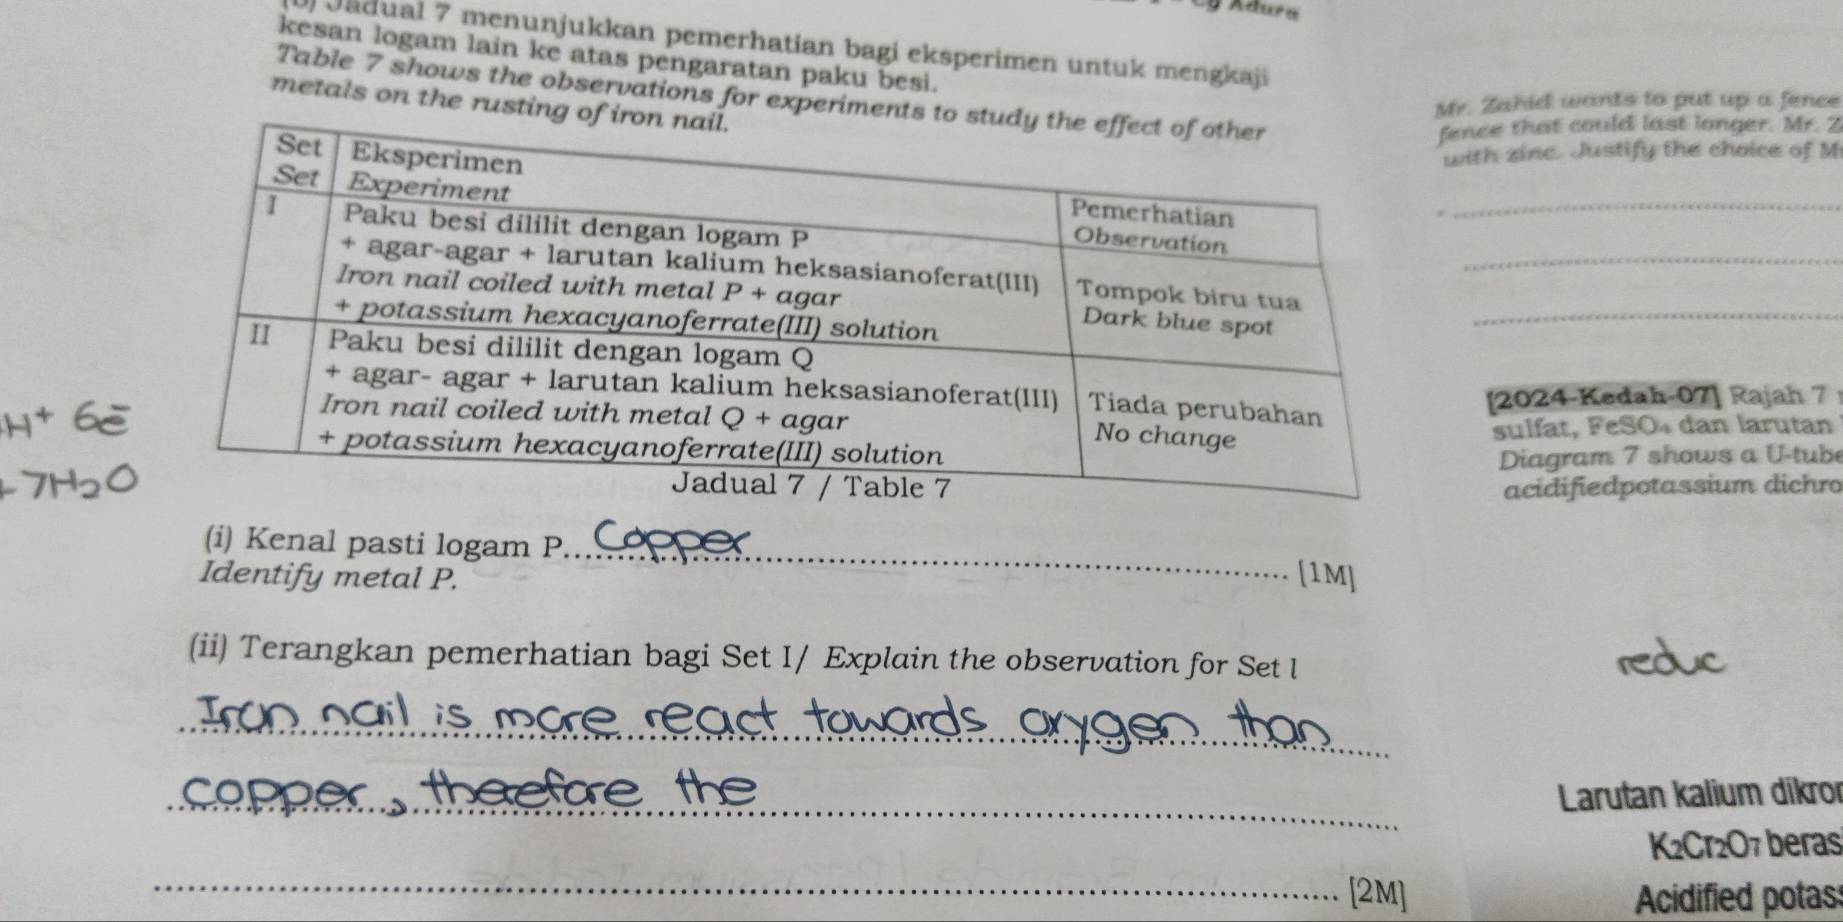 Jadual 7 menunjukkan pemerhatian bagi eksperimen untuk mengkaji
kesan logam lain ke atas pengaratan paku besi.
Table 7 shows the observations for experiments to study the effect of other
metals on the rusting of iron nail.
Set
Set
Eksperimen
Experiment
Pemerhatian
Observation
I
Paku besi dililit dengan logam P
+ agar-agar + larutan kalium heksasianoferat(III)
Iron nail coiled with metal P + agar
+ potassium hexacyanoferrate(III) solution
Tompok biru tua
Dark blue spot
II
Paku besi dililit dengan logam Q
+ agar- agar + larutan kalium heksasianoferat(III)
Iron nail coiled with metal Q + agar
+ potassium hexacyanoferrate(III) solution
Tiada perubahan
No change
Jadual 7 / Table 7
H⁺ 6ē
+ 7H₂O
(i) Kenal pasti logam P. Copper [1M]
Identify metal P.
(ii) Terangkan pemerhatian bagi Set I/ Explain the observation for Set l
Iron nail is more react towards oxygen than
copper, therefore the
[2M]
Mr. Zahid wants to put up a fence
fence that could last longer. Mr. Z
with zinc. Justify the choice of M
[2024-Kedah-07] Rajah 7
sulfat, FeSO₄ dan larutan
Diagram 7 shows a U-tube
acidifiedpotassium dichro
reduc
Larutan kalium dikro
K₂Cr₂O₇ beras
Acidified potas